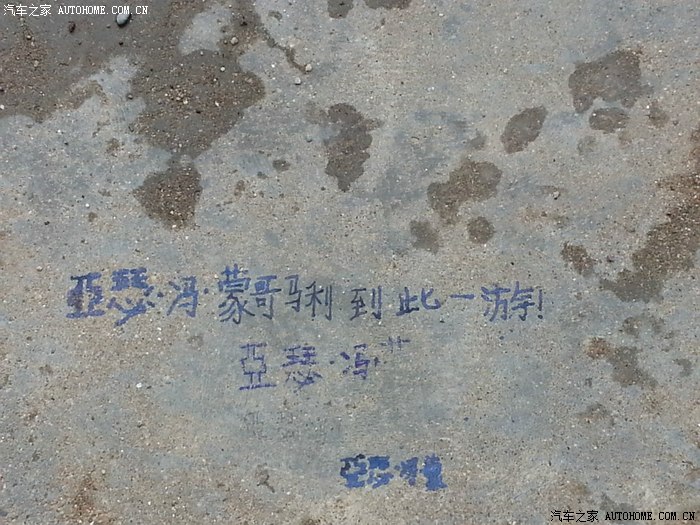 汽车之家 AUTOHOME.COM.CN
亞瑟·冯·蒙哥马利到此一游!
亞瑟·冯·
亞瑟
亞瑟·冯·蒙
汽车之家 AUTOHOME.COM.CN